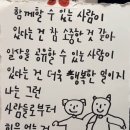 함께할 수 있는 사람이
있다는 건 참 소중한 것 같아
일상을 공유할 수 있는 사람이
있다는 건 더욱 행복한 일이지
나는 그런
사람으로부터